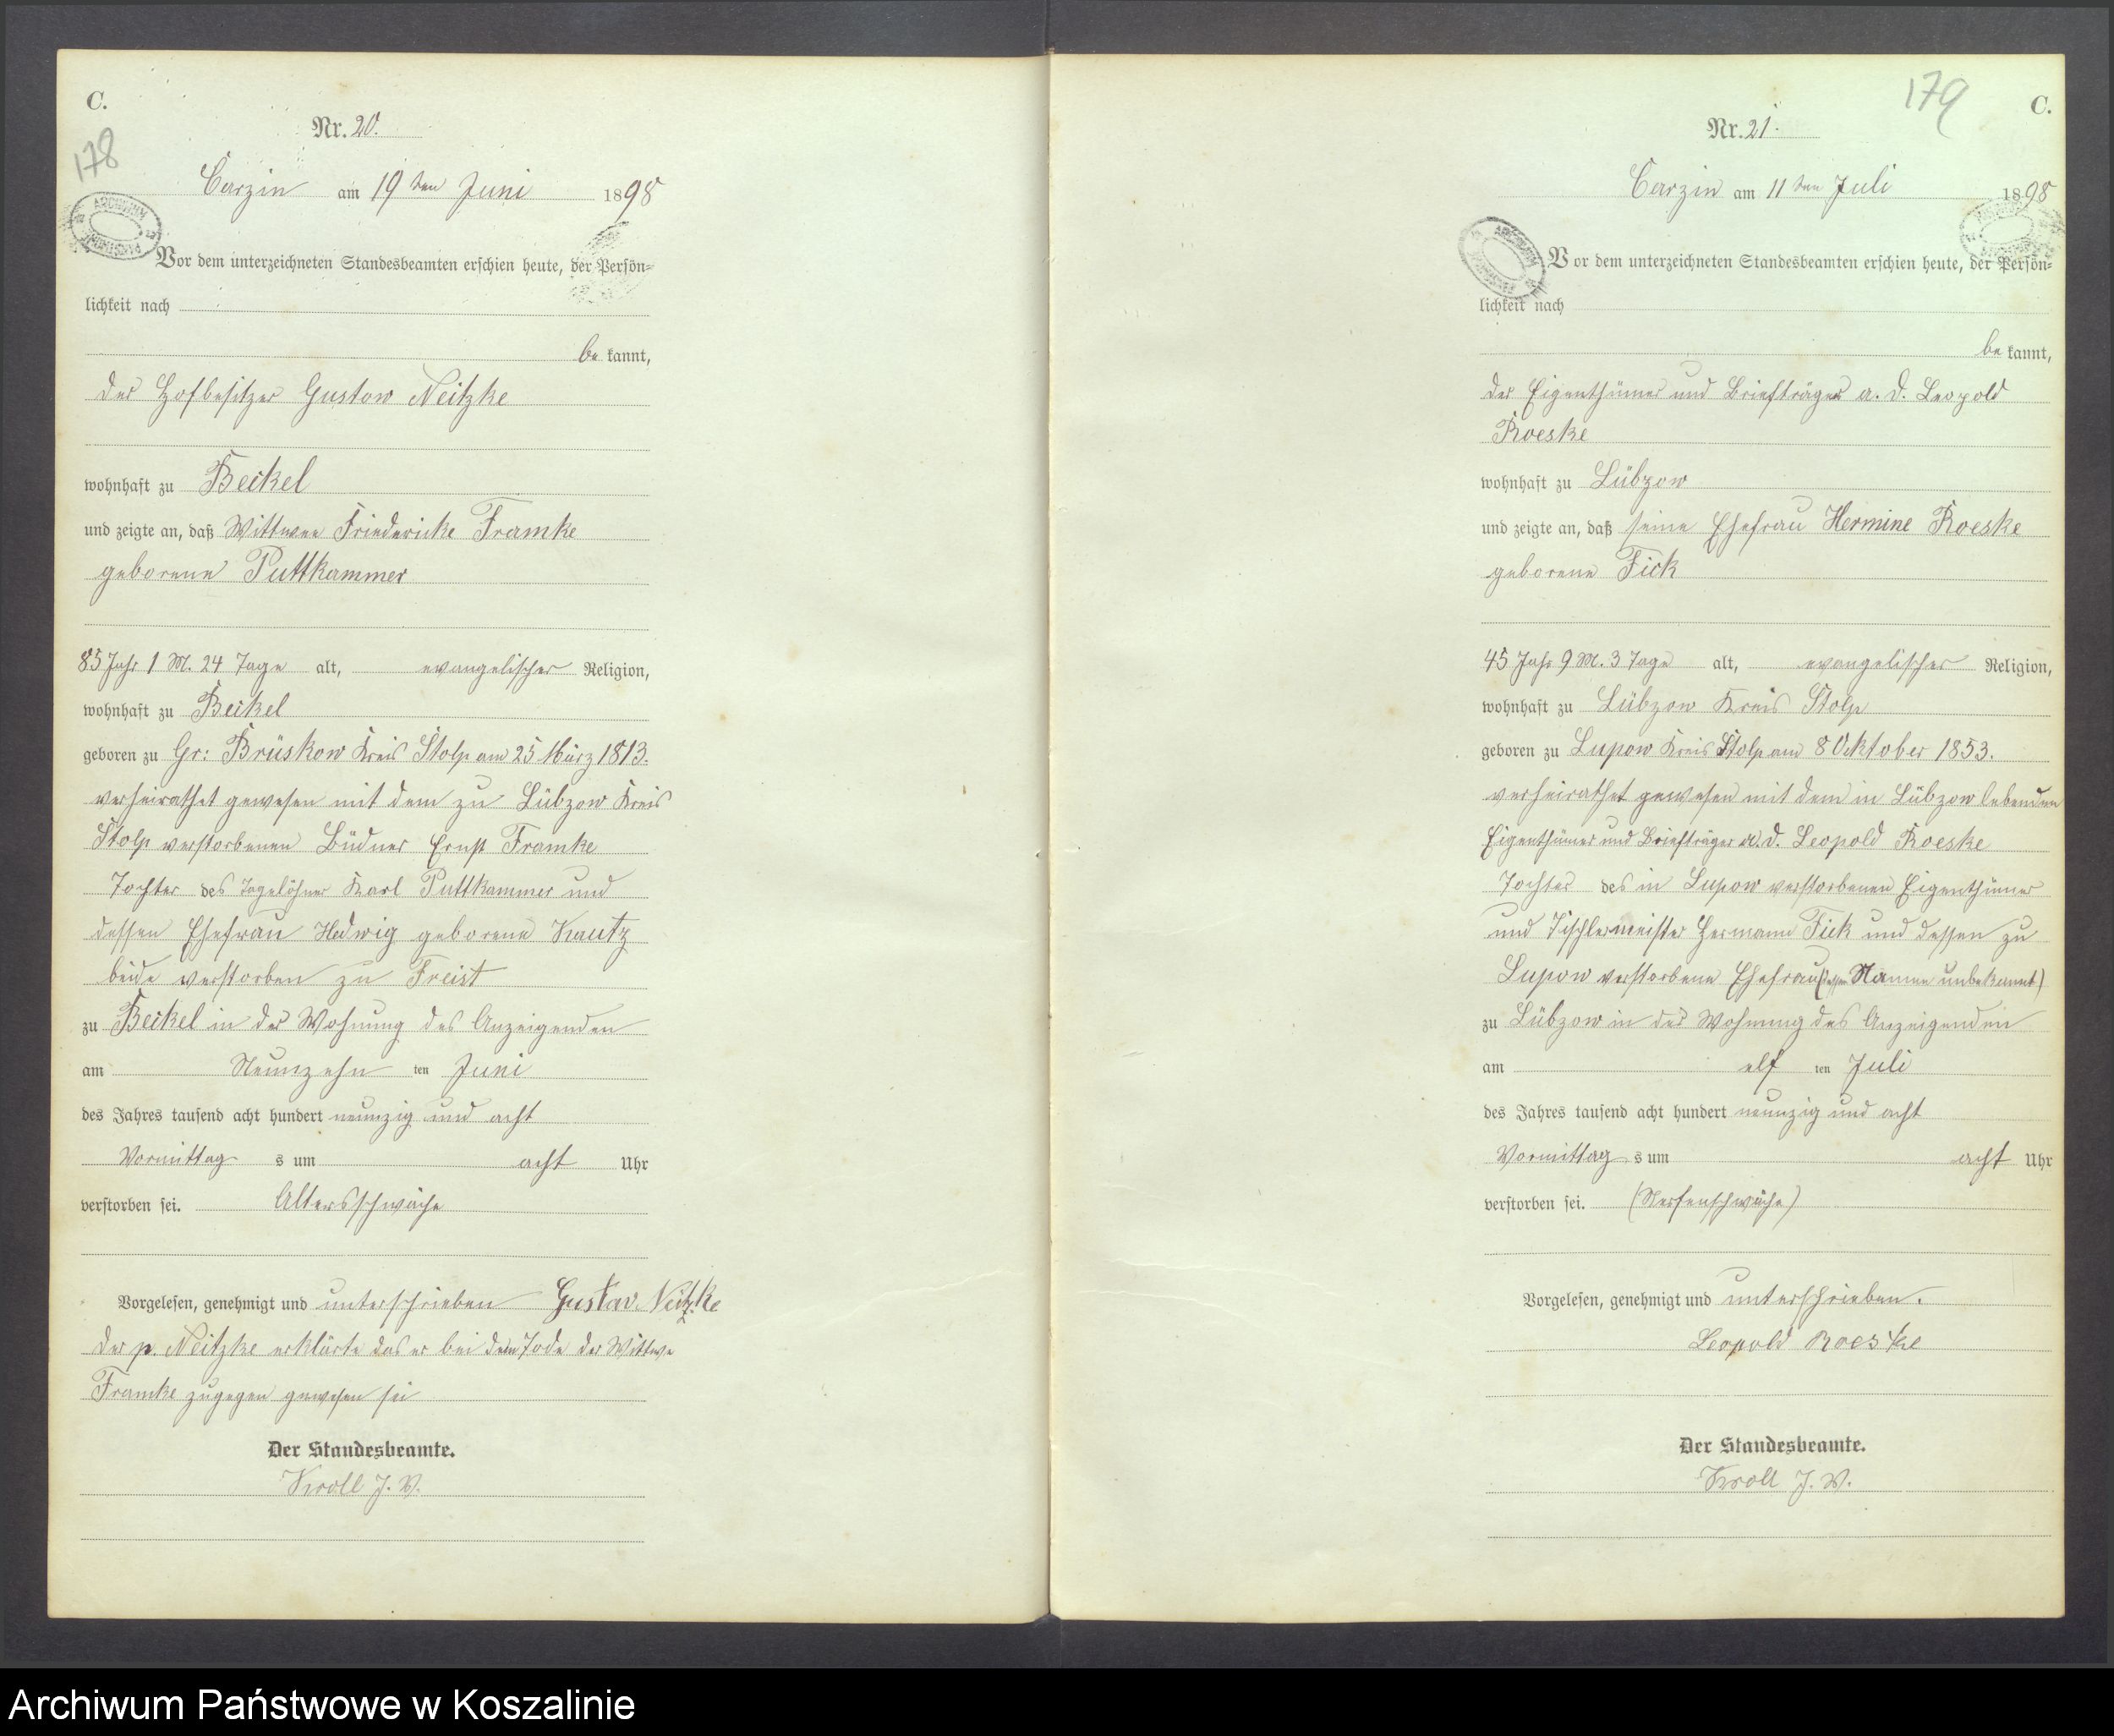 C.
178
Nr. 20.
Carzin am 19ten Juni 1898
Vor dem unterzeichneten Standesbeamten erschien heute, der Persön-
lichkeit nach
be kannt,
der Hofbesitzer Gustav Neitzke
wohnhaft zu Beikel
und zeigte an, daß Wittwe Friedericke Framke
geborene Puttkammer
85 Jahr 1 M. 24 Tage alt, evangelischer Religion,
wohnhaft zu Beikel
geboren zu Gr: Brüskow Kreis Stolp am 25 März 1813.
verheirathet gewesen mit dem zu Lübzow Kreis
Stolp verstorbenen Büdner Ernst Framke
Tochter des Tagelöhner Karl Puttkammer und
dessen Ehefrau Hedwig geborene Kautz
beide verstorben zu Freist
zu Beikel in der Wohnung des Anzeigenden
am Neunzehn ten Juni
des Jahres tausend acht hundert neunzig und acht
Vormittag s um acht Uhr
verstorben sei. Altersschwäche
Vorgelesen, genehmigt und unterschrieben Gustav Neitzke
Der p. Neitzke erklärte das er bei dem Tode der Wittwe
Framke zugegen gewesen sei
Der Standesbeamte.
Kroll J. V.
179
C.
Nr. 21.
Carzin am 11ten Juli 1898
Vor dem unterzeichneten Standesbeamten erschien heute, der Persön-
lichkeit nach
be kannt,
der Eigenthümer und Briefträger a. D. Leopold
Roeske
wohnhaft zu Lübzow
und zeigte an, daß seine Ehefrau Hermine Roeske
geborene Fick
45 Jahr 9 M. 3 Tage alt, evangelischer Religion,
wohnhaft zu Lübzow Kreis Stolp
geboren zu Lupow Kreis Stolp am 8 Oktober 1853.
verheirathet gewesen mit dem in Lübzow lebenden
Eigenthümer und Briefträger a. D. Leopold Roeske
Tochter des in Lupow verstorbenen Eigenthümer
und Tischlermeister Hermann Fick und dessen zu
Lupow verstorbene Ehefrau (dessen Namen unbekannt)
zu Lübzow in der Wohnung des Anzeigenden
am elf ten Juli
des Jahres tausend acht hundert neunzig und acht
Vormittag s um acht Uhr
verstorben sei. (Nerfenschwäche)
Vorgelesen, genehmigt und unterschrieben.
Leopold Roeske
Der Standesbeamte.
Kroll J. V.
Archiwum Państwowe w Koszalinie